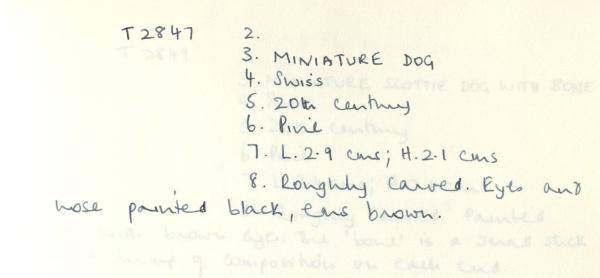 T 2847 2.
3. MINIATURE DOG
4. Swiss
5. 20th century
6. Pine
7. L. 2.9 cms; H. 2.1 cms
8. Roughly carved. Eyes and
nose painted black, ears brown.